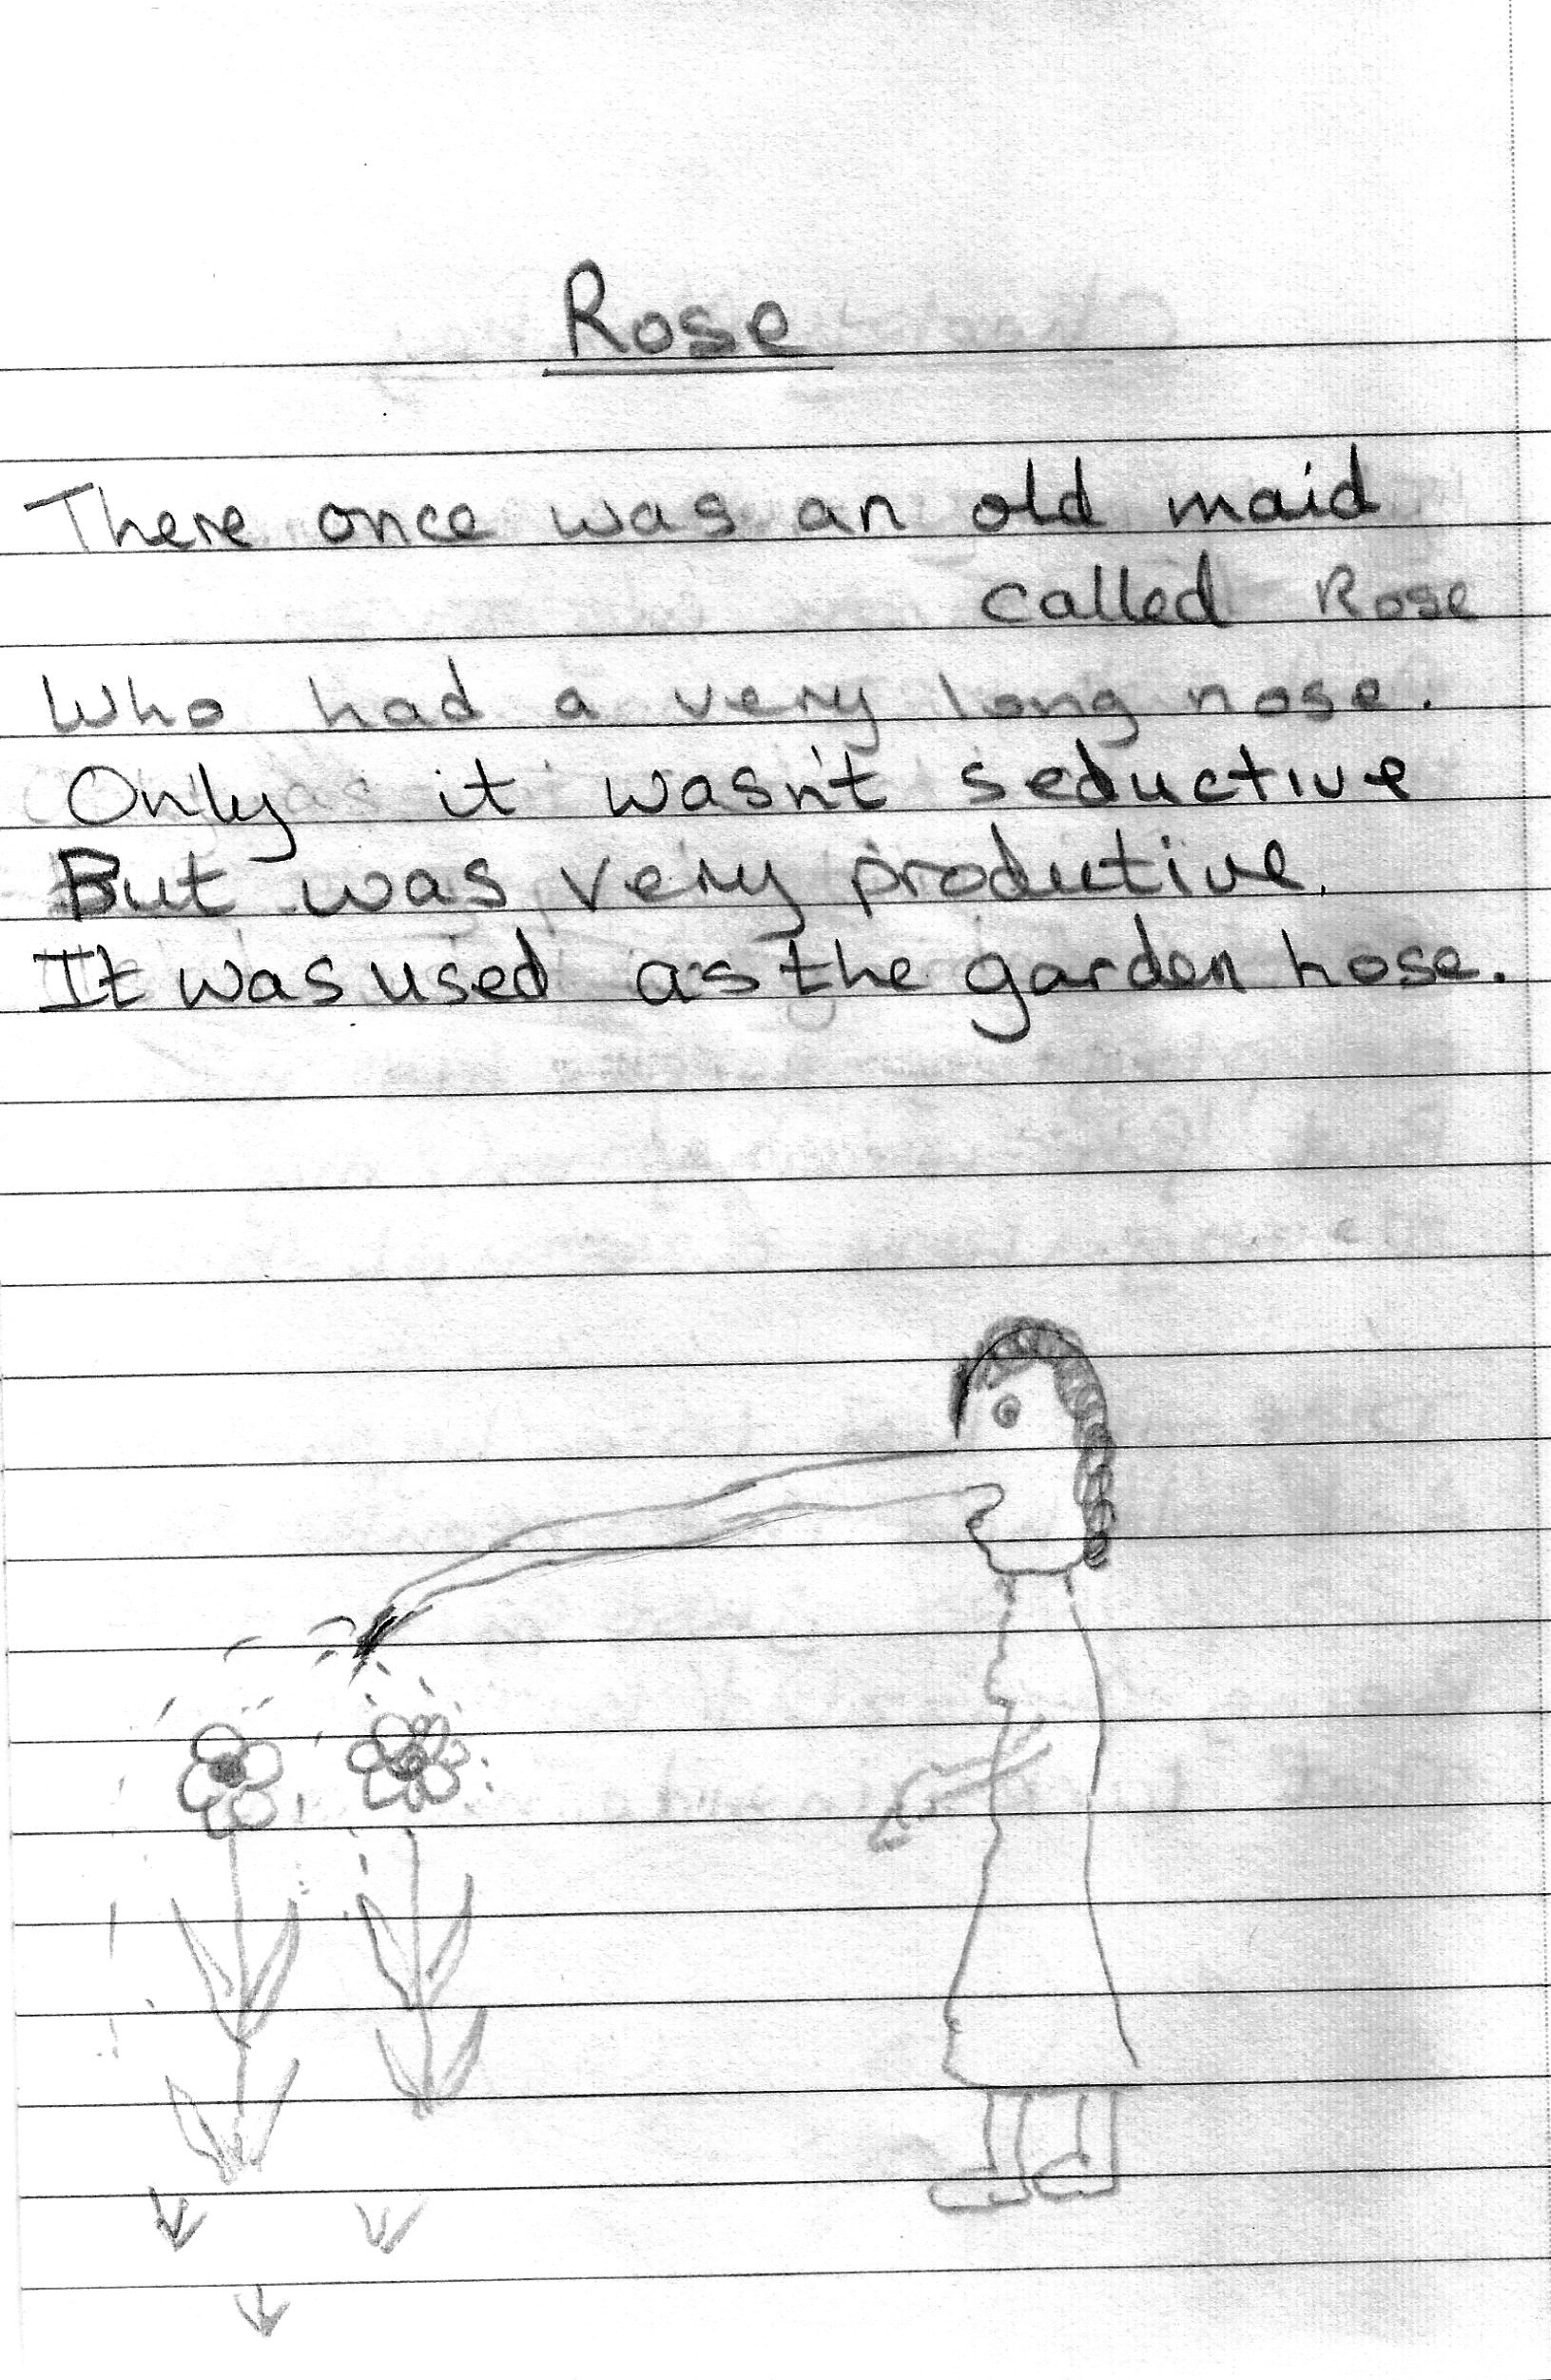 Rose
There once was an old maid
called Rose
Who had a very long nose.
Only it wasn't seductive
But was very productive.
It was used as the garden hose.